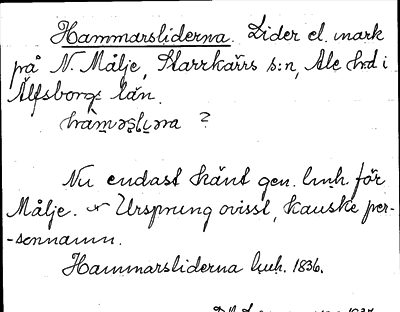 Hammarsliderna. Lider el. mark
på N. Målje, Starrkärrs s:n, Ale hrd i
Älfsborgs län.
?
Nu endast känt gen. lmh. för
Målje. Ursprung ovisst, kanske per-
-sonnamn.
Hammarsliderna lmh. 1836.